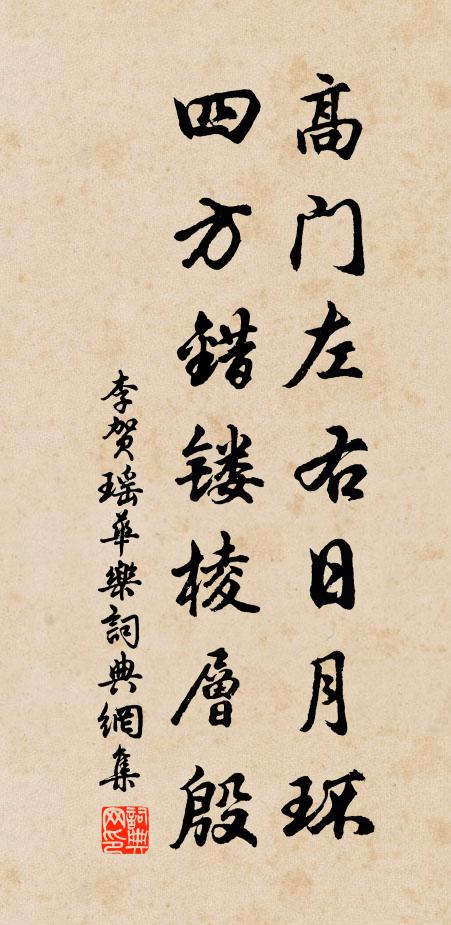 高门左右日月环
四方错镂棱层殷
李贺瑶华樂詞典網集
詞典网印